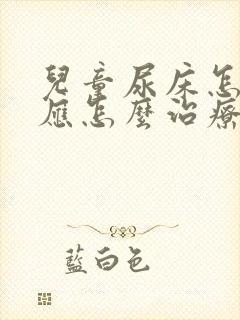 兒童尿床怎
應怎麼治療
藍白色